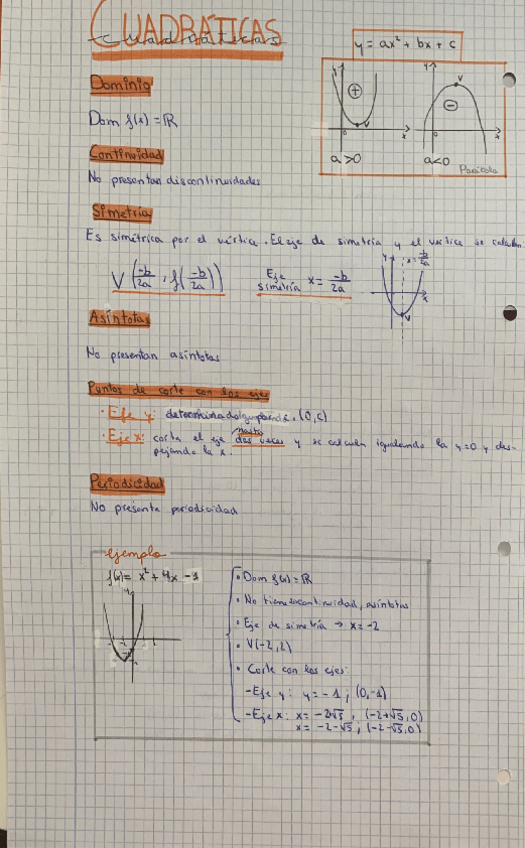 CUADRÁTICAS
cuadráticas
y = ax² + bx + c
Dominio
Dom f(x) = ℝ
a>0
a<0
Parábola
Continuidad
No presentan discontinuidades
Simetría
Es simétrica por el vértice. El eje de simetría y el vértice se calculan
V (-b/2a , f(-b/2a))
Eje simetría x = -b/2a
x = -b/2a
Asíntotas
No presentan asíntotas
Puntos de corte con los ejes
· Eje y: determinado (0, c)
hasta
· Eje x: corta el eje dos veces y se calcula igualando la y=0 y des-
pejando la x.
Periodicidad
No presenta periodicidad
ejemplo
f(x) = x² + 4x - 1
· Dom f(x) = ℝ
· No tiene asíntotas
· Eje de simetría → x = -2
· V(-2,
· Corte con los ejes:
- Eje y: y = -1 ; (0,-1)
- Eje x: (-2+√5,0)
x = -2-√5 ; (-2-√5,0)